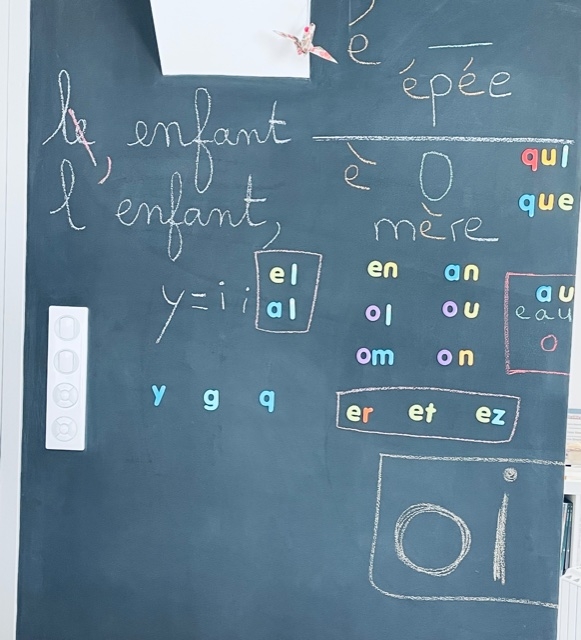 é
épée
le enfant
è
qui
que
l'enfant,
mère
el
al
y = i i
en an
ol ou
om on
au
eau
o
y g q
er et ez
oi